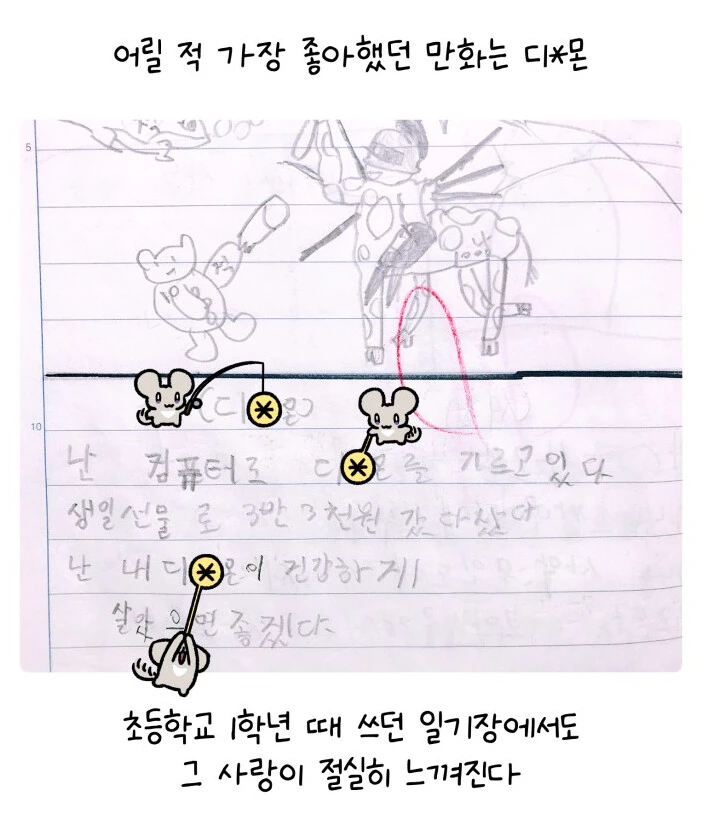 어릴 적 가장 좋아했던 만화는 디*몬
5
(디*몬)
10
난 컴퓨터로 디*몬를 기르고 있다
생일선물로 3만 3천원 갔다 찼다
난 내 디*몬이 건강하게
살았으면 좋겠다.
초등학교 1학년 때 쓰던 일기장에서도
그 사랑이 절실히 느껴진다